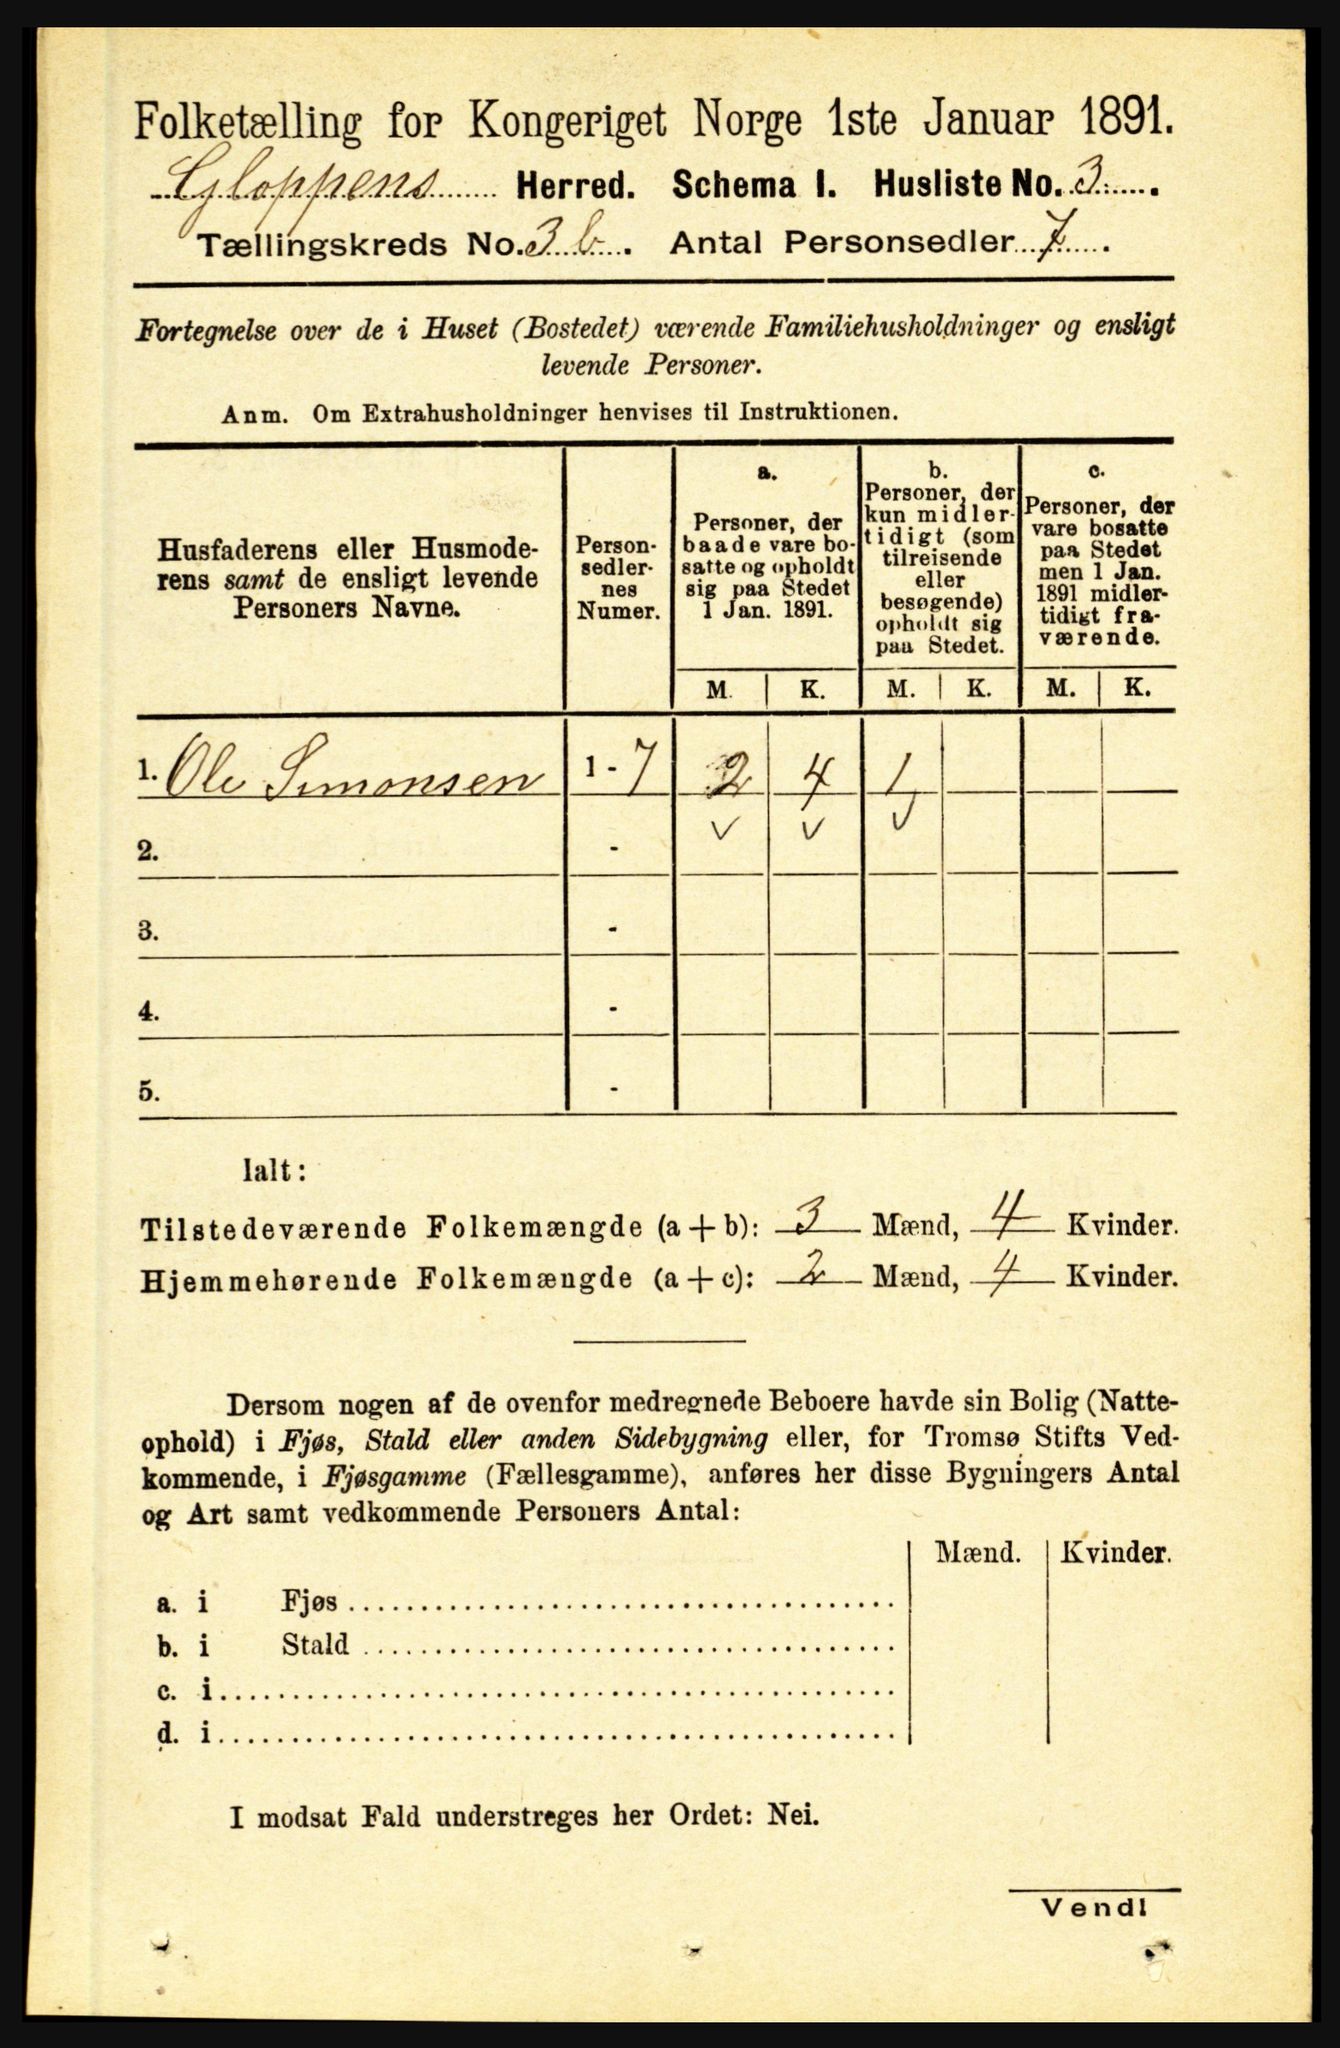 Folketælling for Kongeriget Norge 1ste Januar 1891.
Gloppens Herred. Schema I. Husliste No. 3.
Tællingskreds No. 3 b. Antal Personsedler 7.
Fortegnelse over de i Huset (Bostedet) værende Familiehusholdninger og ensligt
levende Personer.
Anm. Om Extrahusholdninger henvises til Instruktionen.
Husfaderens eller Husmode-
rens samt de ensligt levende
Personers Navne.
Person-
sedler-
nes
Numer.
a.
Personer, der
baade vare bo-
satte og opholdt
sig paa Stedet
1 Jan. 1891.
b.
Personer, der
kun midler-
tidigt (som
tilreisende
eller
besøgende)
opholdt sig
paa Stedet.
c.
Personer, der
vare bosatte
paa Stedet
men 1 Jan.
1891 midler-
tidigt fra-
værende.
M. K. M. K. M. K.
1. Ole Simonsen 1 - 7 2 4 1
2. -
3. -
4. -
5. -
Ialt:
Tilstedeværende Folkemængde (a + b): 3 Mænd, 4 Kvinder.
Hjemmehørende Folkemængde (a + c): 2 Mænd, 4 Kvinder.
Dersom nogen af de ovenfor medregnede Beboere havde sin Bolig (Natte-
ophold) i Fjøs, Stald eller anden Sidebygning eller, for Tromsø Stifts Ved-
kommende, i Fjøsgamme (Fællesgamme), anføres her disse Bygningers Antal
og Art samt vedkommende Personers Antal:
Mænd. Kvinder.
a. i Fjøs
b. i Stald
c. i
d. i
I modsat Fald understreges her Ordet: Nei.
Vend!